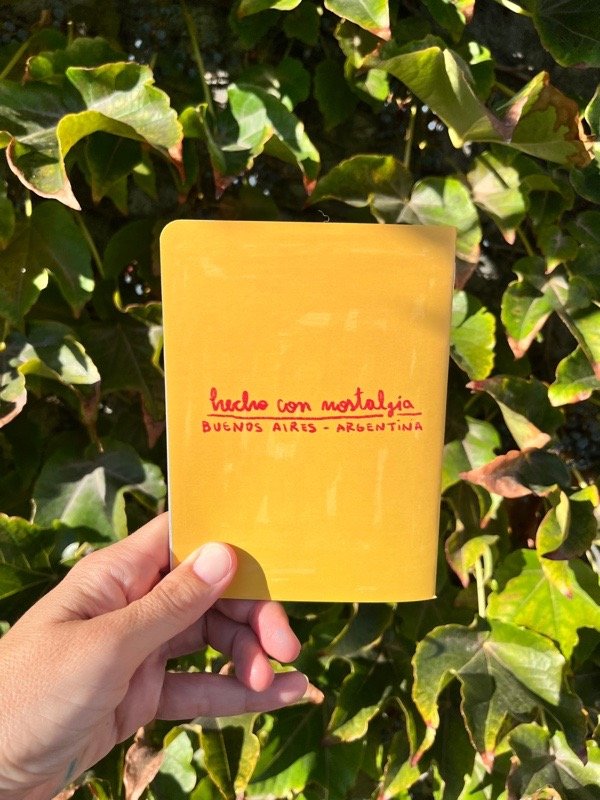 hecho con nostalgia
BUENOS AIRES - ARGENTINA